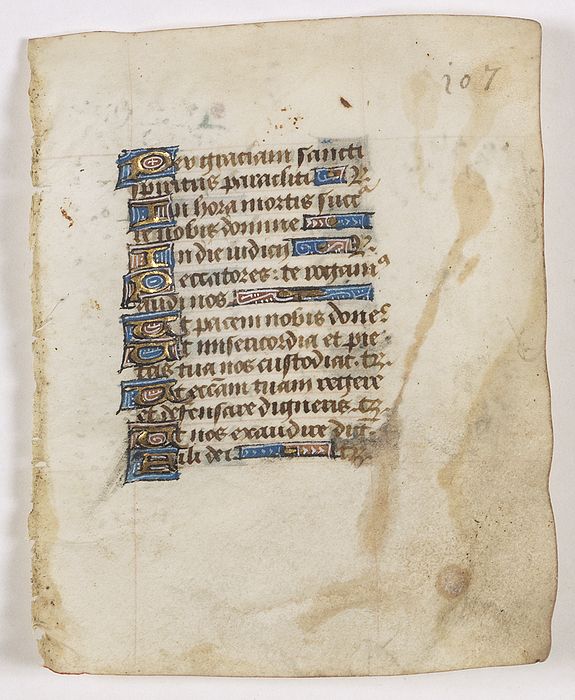 107
Per graciam sancti
spiritus paracliti R
In hora mortis succ
re nobis domine
In die iudicii R
Peccatores te rogam⁹
audi nos
Ut pacem nobis dones
Ut misericordia et pie
tas tua nos custodiat. te R
Ut eccãm tuam regere
et defensare digneris. te R
Ut nos exaudire dig
Fili dei te R